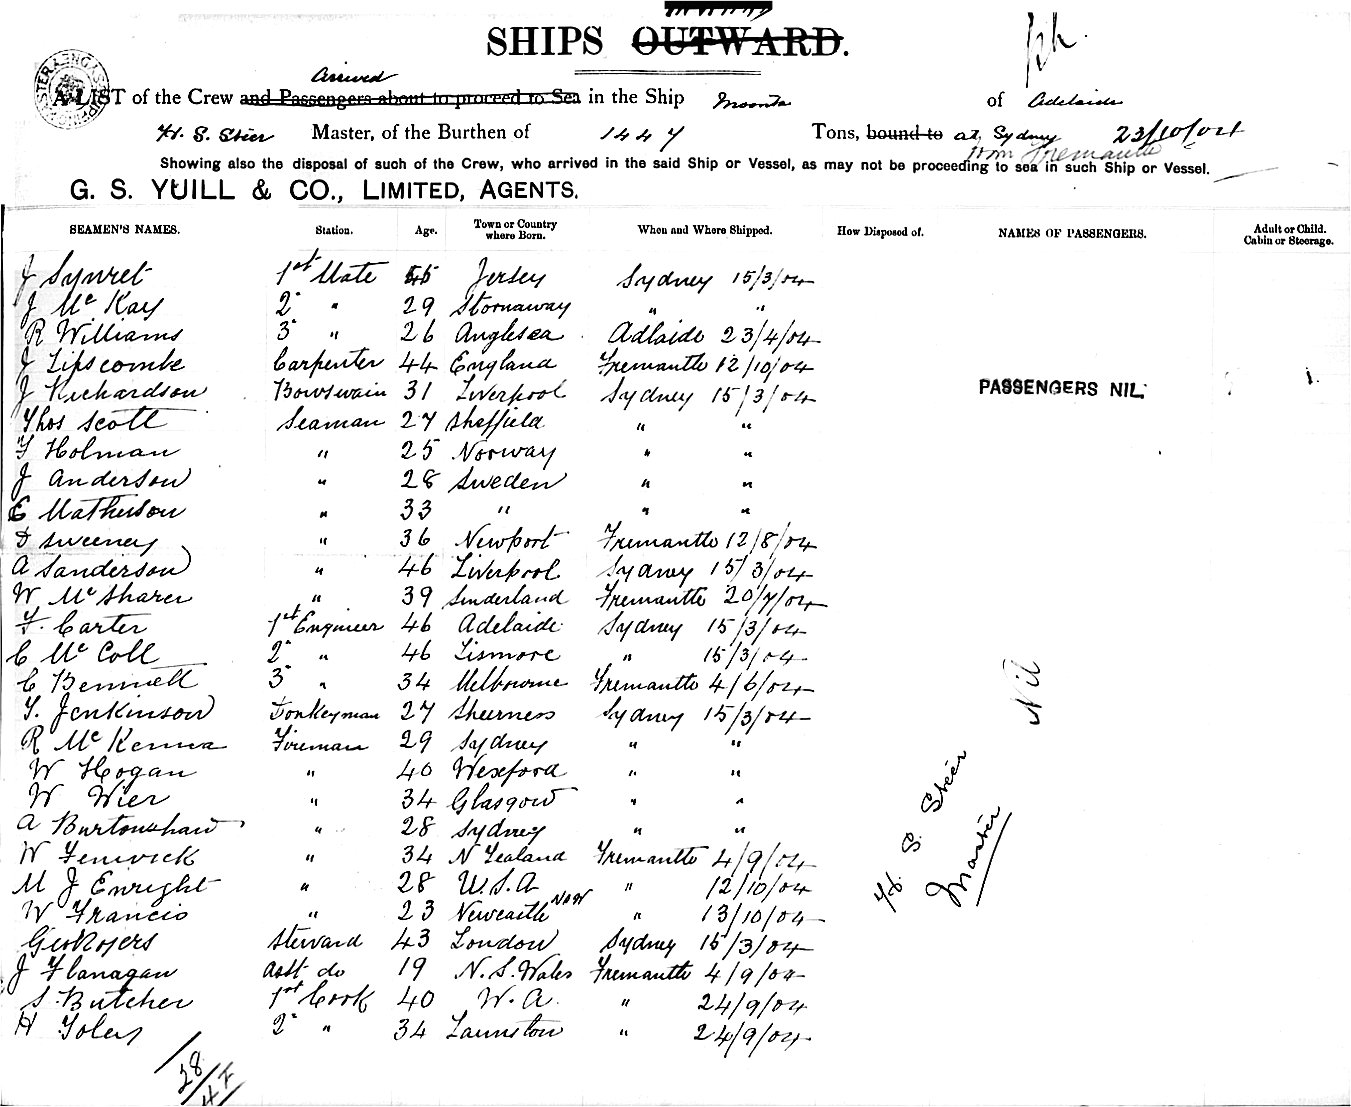 SHIPS OUTWARD.
A LIST of the Crew Arrived and Passengers about to proceed to Sea in the Ship Moonta of Adelaide
H. S. Steer Master, of the Burthen of 1447 Tons, bound to at Sydney 23/10/04
from Fremantle
Showing also the disposal of such of the Crew, who arrived in the said Ship or Vessel, as may not be proceeding to sea in such Ship or Vessel.
G. S. YUILL & CO., LIMITED, AGENTS.
SEAMEN'S NAMES. Station. Age. Town or Country where Born. When and Where Shipped. How Disposed of. NAMES OF PASSENGERS. Adult or Child. Cabin or Steerage.
J Synret 1st Mate Jersey Sydney 15/3/04
J McKay 2" " 29 Stornaway " "
R Williams 3" " 26 Anglesea Adlaide 23/4/04
J Lipscombe Carpenter 44 England Fremantle 12/10/04
J Richardson Bowswain 31 Liverpool Sydney 15/3/04 PASSENGERS NIL.
Thos Scott Seaman 27 Sheffield " "
F Holman " 25 Norway " "
J Anderson " 28 Sweden " "
E Mathieson " 33 " " "
D Sweeney " 36 Newport Fremantle 12/8/04
A Sanderson " 46 Liverpool Sydney 15/3/04
W McSharer " 39 Sunderland Fremantle 20/7/04
F. Carter 1st Engineer 46 Adelaide Sydney 15/3/04
C McColl 2" " 46 Lismore " 15/3/04
C Bennett 3" " 34 Melbourne Fremantle 4/6/04
T. Jenkinson Donkeyman 27 Sheerness Sydney 15/3/04
R McKenna Fireman 29 Sydney " "
W Hogan " 40 Wexford " "
W Wier " 34 Glasgow " "
A Burtonshaw " 28 Sydney " "
W Fenwick " 34 N Zealand Fremantle 4/9/04
M J Enright " 28 U.S.A " 12/10/04
W Francis " 23 Newcastle NSW " 13/10/04
Geo Rogers Steward 43 London Sydney 15/3/04
J Flanagan asst do 19 N.S.Wales Fremantle 4/9/04
S. Butcher 1st Cook 40 W.A. " 24/9/04
H Foley 2" " 34 Launston " 24/9/04
Nil
H. S. Steer
Master
28